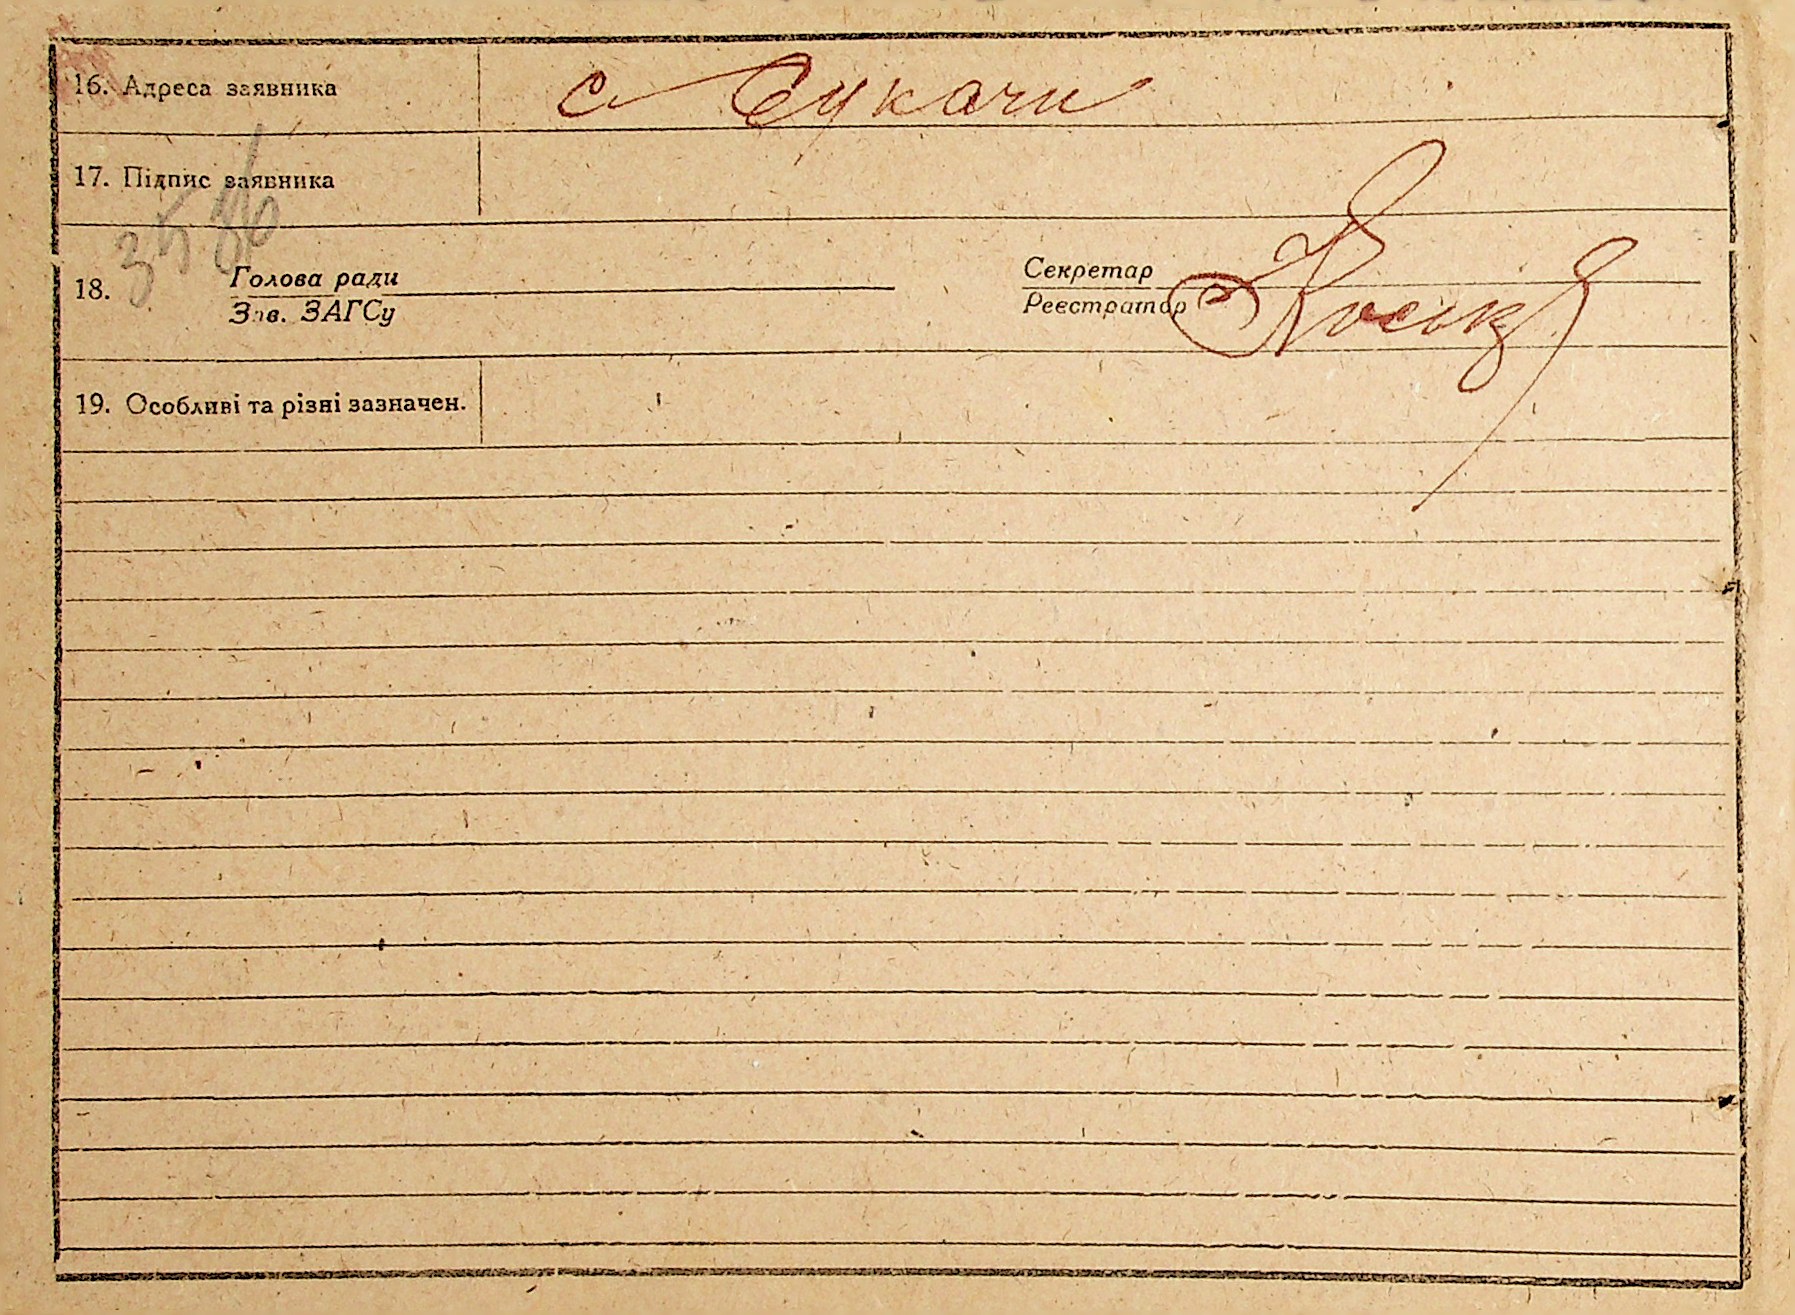 16. Адреса заявника с Сукачи
17. Підпис заявника
18. Голова ради Секретар
Зав. ЗАГСу Реєстратор
19. Особливі та різні зазначен.